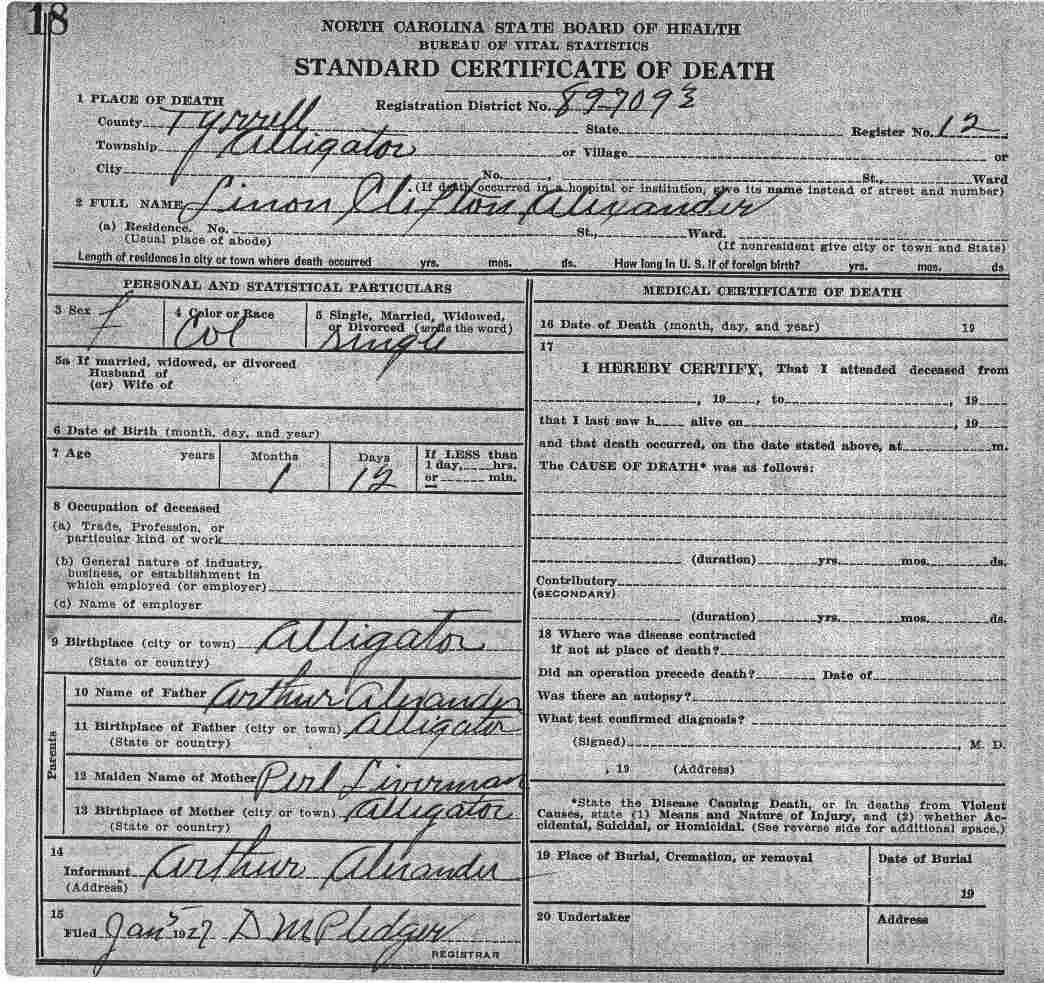 18
NORTH CAROLINA STATE BOARD OF HEALTH
BUREAU OF VITAL STATISTICS
STANDARD CERTIFICATE OF DEATH
1 PLACE OF DEATH Registration District No. 897093
County Tyrrell State Register No. 12
Township Alligator or Village or
City No. , St., Ward
(If death occurred in a hospital or institution, give its name instead of street and number)
2 FULL NAME Linon Clifton Alexander
(a) Residence. No. St., Ward.
(Usual place of abode) (If nonresident give city or town and State)
Length of residence in city or town where death occurred yrs. mos. ds. How long in U. S. if of foreign birth? yrs. mos. ds
PERSONAL AND STATISTICAL PARTICULARS
3 Sex f 4 Color or Race Col 5 Single, Married, Widowed,
or Divorced (write the word)
Single
5a If married, widowed, or divorced
Husband of
(or) Wife of
6 Date of Birth (month, day, and year)
7 Age years Months 1 Days 12 If LESS than
1 day, hrs.
or min.
8 Occupation of deceased
(a) Trade, Profession, or
particular kind of work
(b) General nature of industry,
business, or establishment in
which employed (or employer)
(c) Name of employer
9 Birthplace (city or town) Alligator
(State or country)
Parents
10 Name of Father Arthur Alexander
11 Birthplace of Father (city or town) Alligator
(State or country)
12 Maiden Name of Mother Perl Liverman
13 Birthplace of Mother (city or town) Alligator
(State or country)
14
Informant Arthur Alexander
(Address)
15
Filed Jan 5 1927 D M Pledger
REGISTRAR
MEDICAL CERTIFICATE OF DEATH
16 Date of Death (month, day, and year) 19
17
I HEREBY CERTIFY, That I attended deceased from
, 19 , to , 19
that I last saw h alive on , 19
and that death occurred, on the date stated above, at m.
The CAUSE OF DEATH* was as follows:
(duration) yrs. mos. ds.
Contributory
(SECONDARY)
(duration) yrs. mos. ds.
18 Where was disease contracted
if not at place of death?
Did an operation precede death? Date of
Was there an autopsy?
What test confirmed diagnosis?
(Signed) , M. D.
, 19 (Address)
*State the Disease Causing Death, or in deaths from Violent
Causes, state (1) Means and Nature of Injury, and (2) whether Ac-
cidental, Suicidal, or Homicidal. (See reverse side for additional space.)
19 Place of Burial, Cremation, or removal Date of Burial
19
20 Undertaker Address